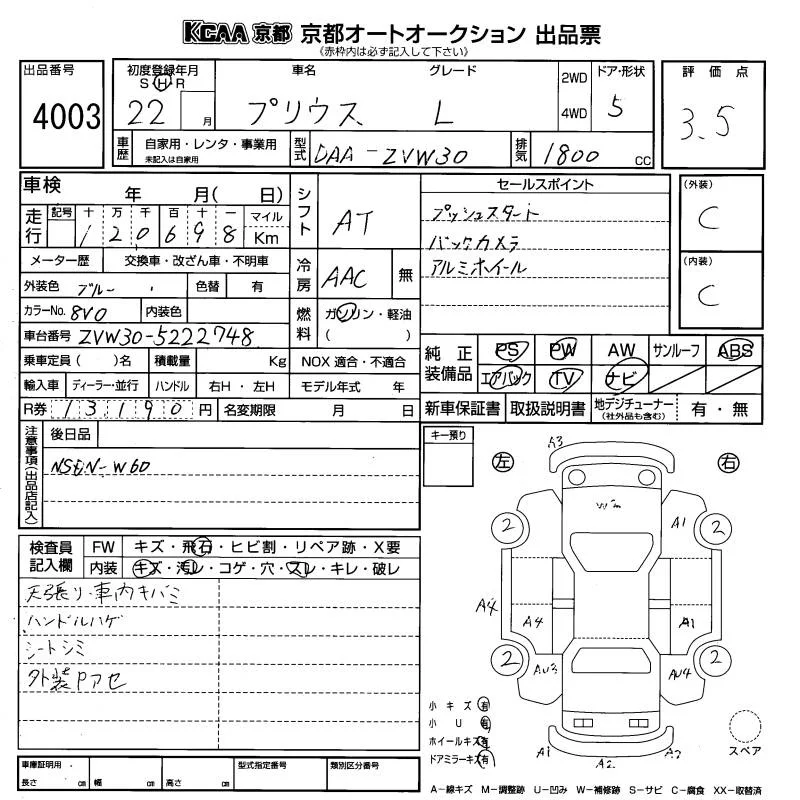 KCAA 京都 京都オートオークション 出品票
(赤枠内は必ず記入して下さい)
出品番号
4003
初度登録年月
S H R
22 月
車名
プリウス
グレード
L
2WD
4WD
ドア・形状
5
評価点
3.5
車歴
自家用・レンタ・事業用
未記入は自家用
型式
DAA-ZVW30
排気
1800 cc
車検 年 月( 日)
走行
記号 十 万 千 百 十 一 マイル
1 2 0 6 9 8 Km
メーター歴 交換車・改ざん車・不明車
外装色 ブルー 色替 有
カラーNo. 8V0 内装色
車台番号 ZVW30-5222748
乗車定員( )名 積載量 Kg
輸入車 ディーラー・並行 ハンドル 右H・左H
R券 13190 円 名変期限 月 日
シフト
AT
冷房
AAC 無
燃料
ガソリン・軽油
( )
NOX 適合・不適合
モデル年式 年
セールスポイント
プッシュスタート
バックカメラ
アルミホイール
(外装)
C
(内装)
C
純正装備品
PS PW AW サンルーフ ABS
エアバック TV ナビ
新車保証書 取扱説明書 地デジチューナー(社外品も含む) 有・無
注意事項(出品店記入)
後日品
NSEN-W60
キー預り
検査員記入欄
FW キズ・飛石・ヒビ割・リペア跡・X要
内装 キズ・汚レ・コゲ・穴・スレ・キレ・破レ
天張り・車内キバミ
ハンドルハゲ
シートシミ
外装Pアセ
車庫証明用
長さ cm 幅 cm 高さ cm
型式指定番号
類別区分番号
左
右
A3
2
A1
2
A4
A4
A1
2
AU3
AU4
2
A1
A2
A2
小キズ 有
小U 有
ホイールキズ 有
ドアミラーキズ 有
スペア
A-線キズ M-調整跡 U-凹み W-補修跡 S-サビ C-腐食 XX-取替済